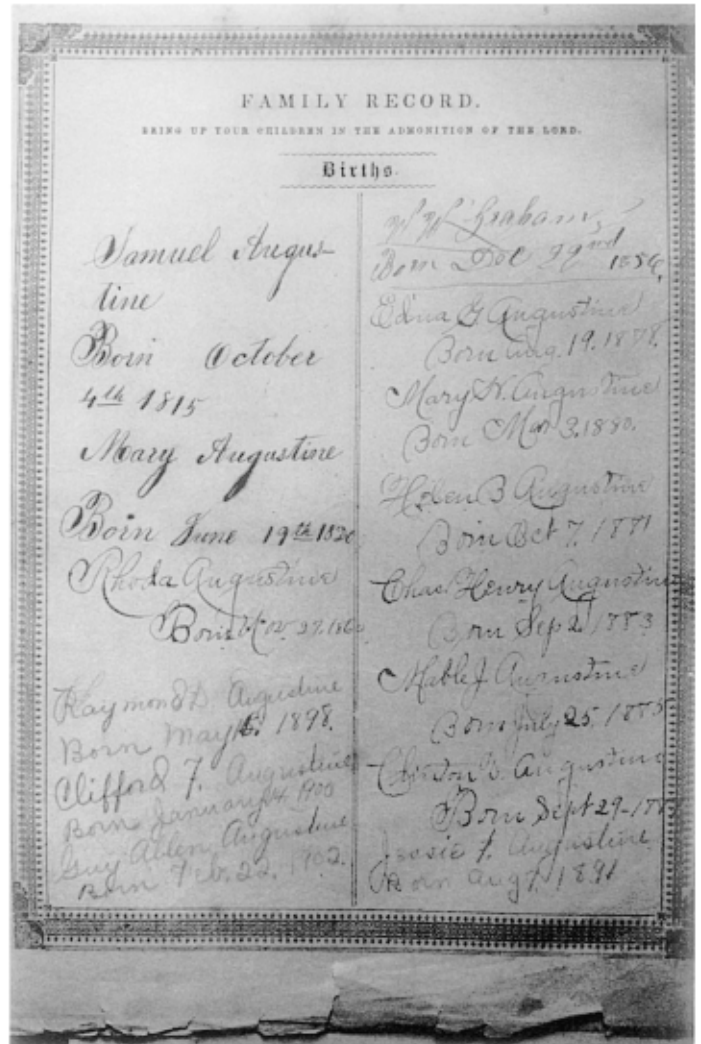 FAMILY RECORD.
BRING UP YOUR CHILDREN IN THE ADMONITION OF THE LORD.
Births.
Samuel Augus-
tine
Born October
4th 1815
Mary Augustine
Born June 19th 1820
Rhoda Augustine
Born Nov. 27. 1860
Raymond D. Augustine
Born May 1898.
Clifford F. Augustine
Born January 1900
Guy Allen Augustine
Born Feb. 22. 1902.
W W Graham,
Born Dec 22nd 1856,
Edna G Augustine
Born Aug. 19. 1878.
Mary N. Augustine
Born Mar 3. 1880.
Helen B Augustine
Born Oct 7. 1881
Chas. Henry Augustine
Born Sep 2 1883
Mable J Augustine
Born July 25. 1885
Clinton S. Augustine
Born Sept 29-
Jessie F. Augustine
Born Aug 7. 1891